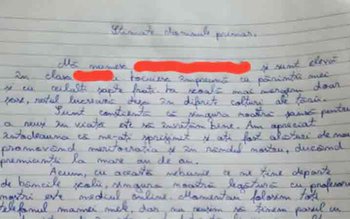 Stimate domnule primar,
Mă numesc și sunt elevă
în clasa a locuiesc împreună cu părinții mei
și cu ceilalți șapte frați. La școală mai mergem doar
șase, restul lucrează deja în diferite colțuri de țară.
Sunt conștientă că singura noastră șansă pentru
a reuși în viață este să învățăm bine. Am apreciat
întotdeauna că ne-ați sprijinit și ați fost alături de noi
promovând meritocrația și în rândul nostru, ducând
premianții la mare an de an.
Acum, cu această nebunie a ne ține departe
de băncile școlii, singura noastră legătură cu profesorii
noștri este mediul online. Momentan folosim toți
telefonul mamei mele, dar nu reușim să ținem pasul cu